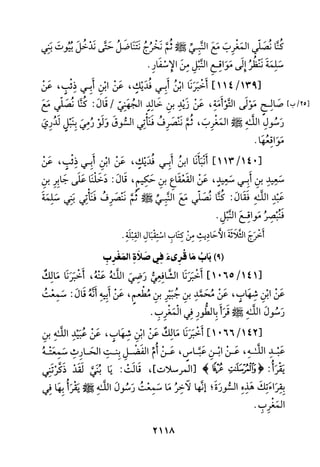 كُنَّا نُصَلِّي المَغْرِبَ مَعَ النَّبِيِّ ﷺ ثُمَّ نَخْرُجُ نَتَنَاضَلُ حَتَّى نَدْخُلَ بُيُوتَ بَنِي
سَلِمَةَ نَنْظُرُ إِلَى مَوَاقِعِ النَّبْلِ مِنَ الإِسْفَارِ.
[١١٤/١٣٩] أَخْبَرَنَا ابْنُ أَبِي فُدَيْكٍ، عَنِ ابْنِ أَبِي ذِئْبٍ، عَنْ
صَالِحٍ مَوْلَى التَّوْأَمَةِ، عَنْ زَيْدِ بنِ خَالِدٍ الجُهَنِيِّ / قَالَ: كُنَّا نُصَلِّي مَعَ [٢٥/ب]
رَسُولِ اللَّهِ ﷺ المَغْرِبَ، ثُمَّ نَنْصَرِفُ فَنَأْتِي السُّوقَ وَلَوْ رُمِيَ بِنَبْلٍ لَرُئِيَ
مَوَاقِعُهَا.
[١١٣/١٤٠] أَنْبَأَنَا ابنُ أَبِي فُدَيْكٍ، عَنِ ابْنِ أَبِي ذِئْبٍ، عَنْ
سَعِيدِ بنِ أَبِي سَعِيدٍ، عَنِ القَعْقَاعِ بنِ حَكِيمٍ، قَالَ: دَخَلْنَا عَلَى جَابِرِ بنِ
عَبْدِ اللَّهِ فَقَالَ: كُنَّا نُصَلِّي مَعَ النَّبِيِّ ﷺ ثُمَّ نَنْصَرِفُ فَنَأْتِي بَنِي سَلِمَةَ
فَنُبْصِرُ مَوَاقِعَ النَّبْلِ.
أَخْرَجَ الثَّلَاثَةَ الأَحَادِيثَ مِنْ كِتَابِ اسْتِقْبَالِ القِبْلَةِ.
(٩) بَابُ مَا قُرِئَ فِي صَلَاةِ المَغْرِبِ
[١٠٦٥/١٤١] أَخْبَرَنَا الشَّافِعِيُّ رَضِيَ اللَّهُ عَنْهُ، أَخْبَرَنَا مَالِكٌ
عَنِ ابْنِ شِهَابٍ، عَنْ مُحَمَّدِ بْنِ جُبَيْرِ بْنِ مُطْعِمٍ، عَنْ أَبِيهِ أَنَّهُ قَالَ: سَمِعْتُ
رَسُولَ اللَّهِ ﷺ قَرَأَ بِالطُّورِ فِي الْمَغْرِبِ.
[١٠٦٦/١٤٢] أَخْبَرَنَا مَالِكٌ عَنْ ابْنِ شِهَابٍ، عَنْ عُبَيْدِ اللَّهِ بنِ
عَبْدِ اللَّهِ، عَنِ ابْنِ عَبَّاسٍ، عَنْ أُمِّ الفَضْلِ بِنتِ الحَارِثِ سَمِعَتْهُ
يَقْرَأُ: ﴿وَالْمُرْسَلَاتِ عُرْفًا﴾ [المرسلات]، قَالَتْ: يَا بُنَيَّ لَقَدْ ذَكَّرْتَنِي
بِقِرَاءَتِكَ هَذِهِ السُّورَةَ؛ إِنَّها لآخِرُ مَا سَمِعْتُ رَسُولَ اللَّهِ ﷺ يَقْرَأُ بِهَا فِي
المَغْرِبِ.
٢١١٨